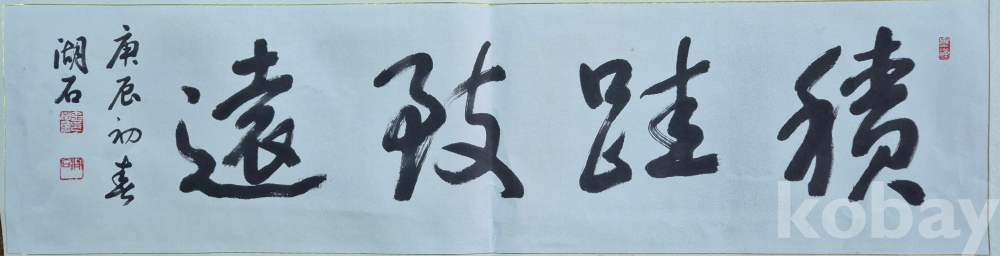 積跬致遠
庚辰初春
湖石
kobay